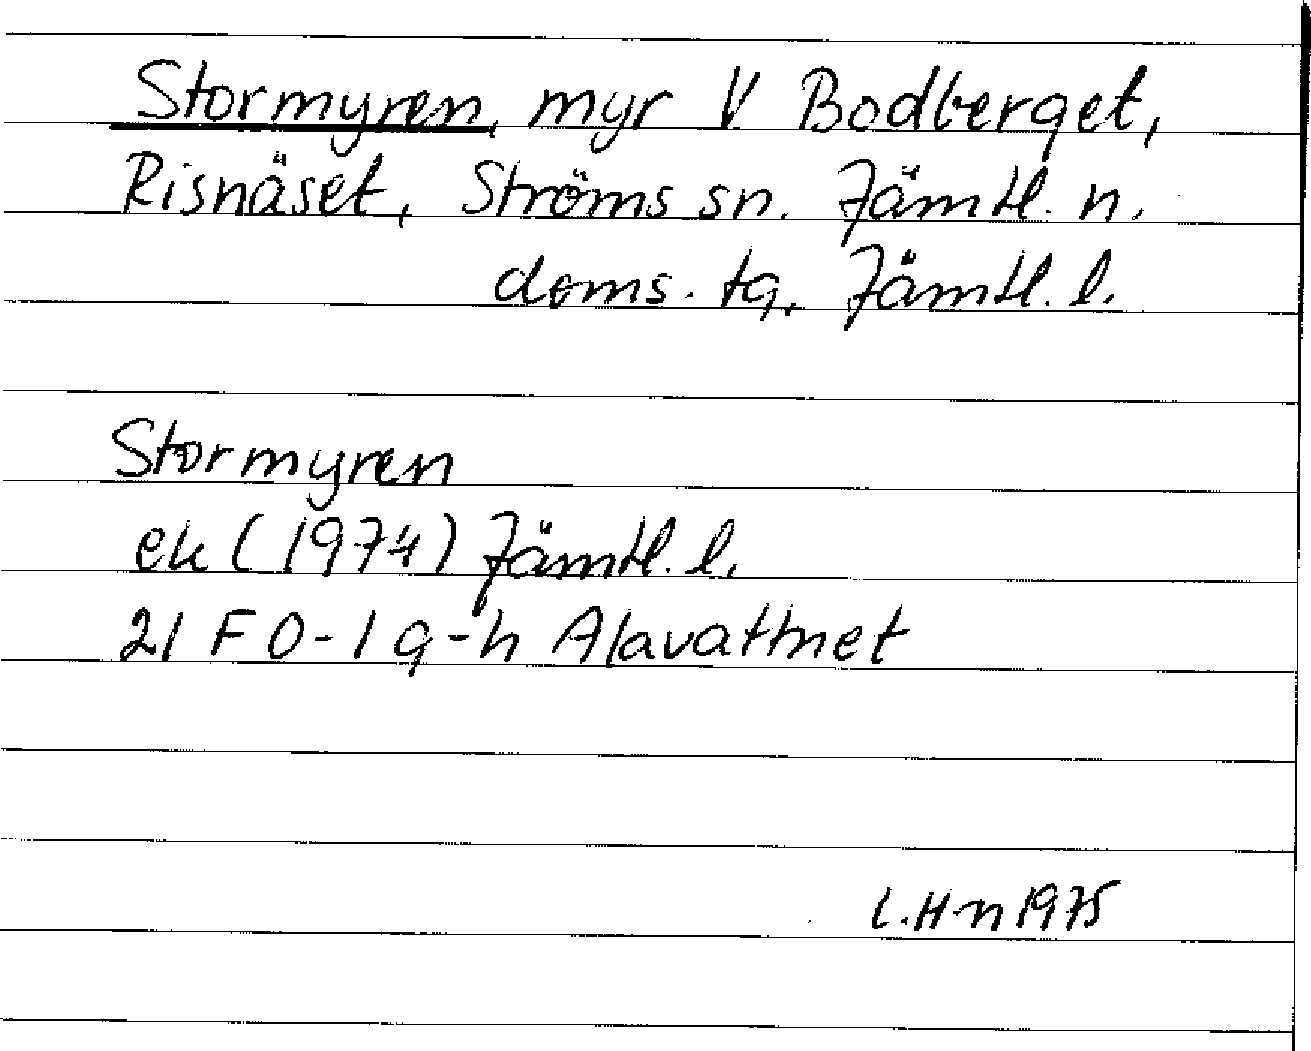 Stormyren, myr V Bodberget,
Risnäset, Ströms sn. Jämtl. n.
doms. tg, Jämtl. l.
Stormyren
ek (1974) Jämtl. l.
21 F 0-1 g-h Alavattnet
L.H-n 1975